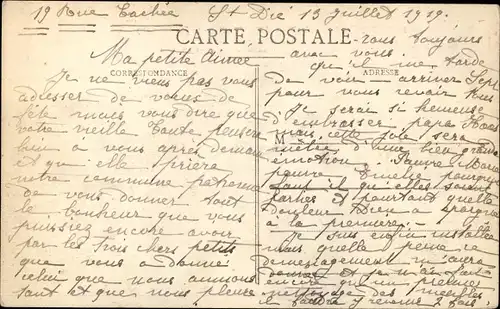 19 Rue Cachée St Dié 13 Juillet 1919.
CARTE POSTALE
Ma petite Aimée
CORRESPONDANCE
Je ne viens pas vous
adresser de vœux de
fête mais vous dire que
votre vieille Tante pensera
bien a vous après demain
et qu'elle priera
notre commune patronne
de vous donner tout
le bonheur que vous
puissiez encore avoir
par les trois chers petits
que vous a donné
celui que nous aimions
tant et que nous pleurons
tous toujours
avec vous.
qu'il me tarde
ADRESSE
de voir arriver Sept
pour nous revoir tous
Je serai si heureuse
d'embrasser papa
mais cette joie sera
d'une bien grande
émotion. Pauvre Marie
pauvre Emilie pourquoi
faut il qu'elles soient
parties et pourtant quelle
douleur Dieu a épargné
à la première.
Je suis enfin installée
mais quelle peine ce
déménagement m'aura
donnée et je n'ai fait
encore qu'un premier
nettoyage des meubles
il faudra y revenir 2 fois